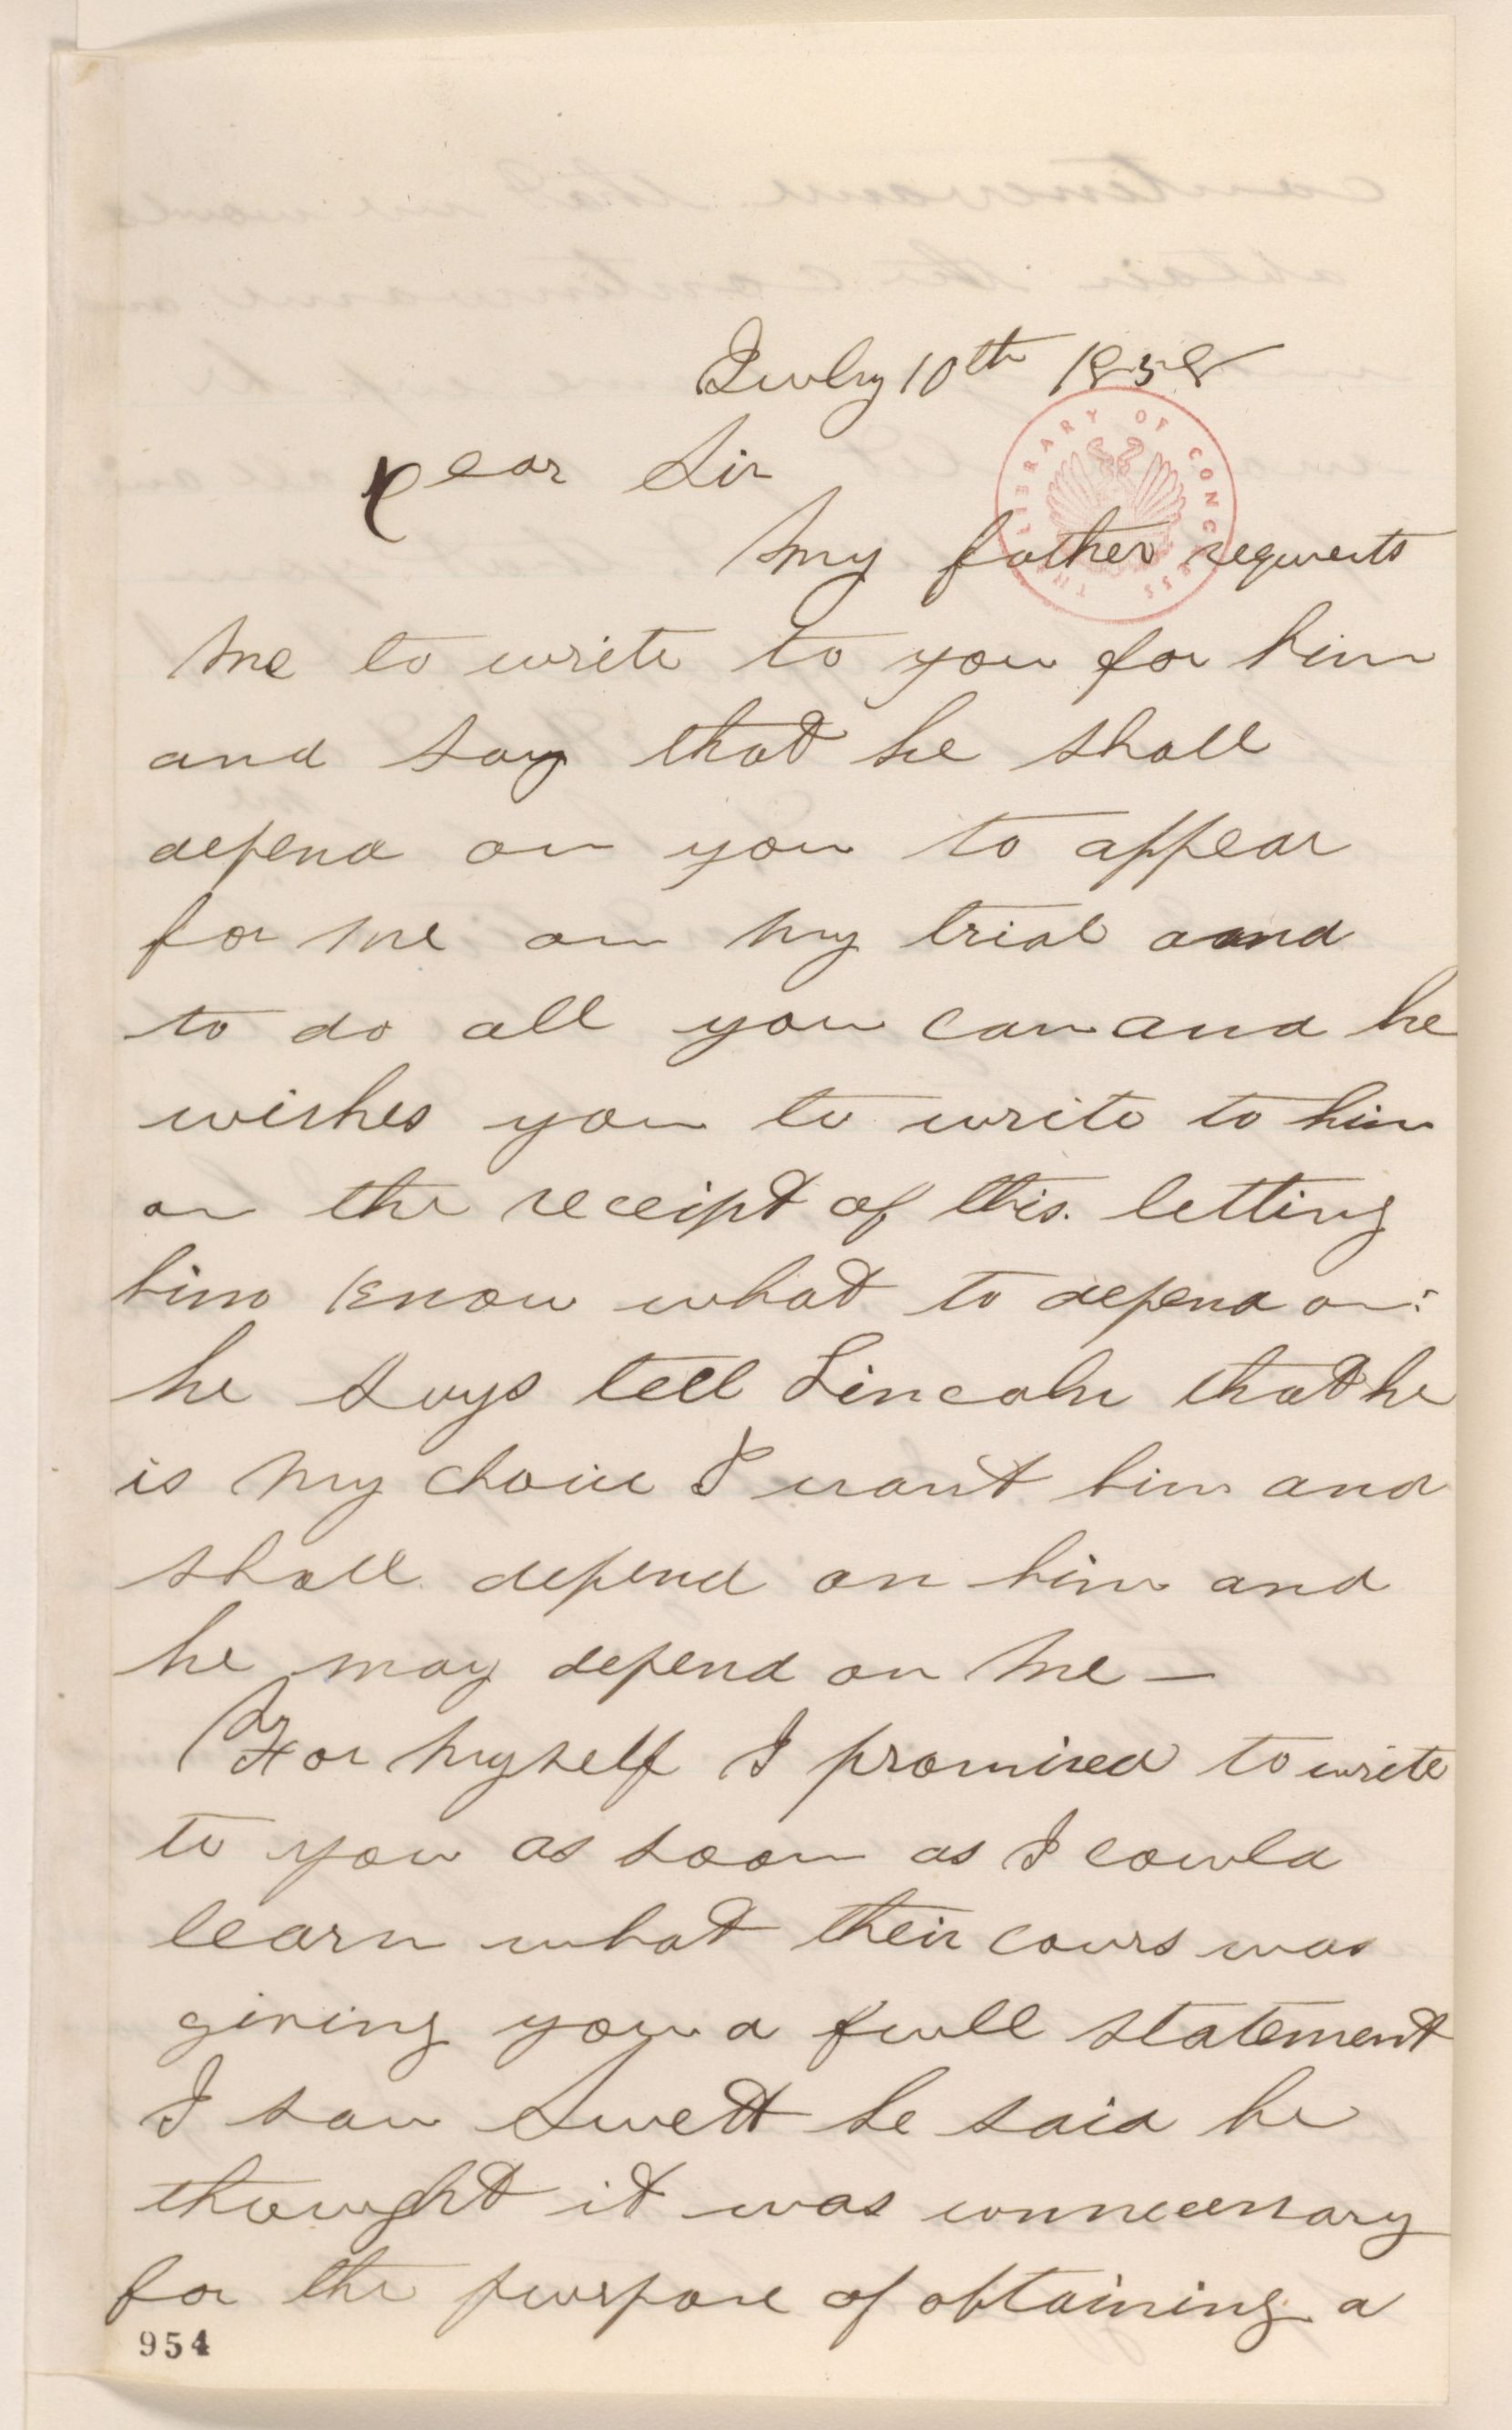 July 10th 1858
Dear Sir
My father requests
me to write to you for him
and say that he shall
depend on you to appear
for me on my trial aand
to do all you can and he
wishes you to write to him
on the receipt of this. letting
him know what to depend on:
he says tell Lincoln that he
is my choice I want him and
shall depend on him and
he may depend on me —
For myself I promised to write
to you as soon as I could
learn what their cours was
giving you a full statement
I saw Swett he said he
thought it was unnecessary
for the purpose of obtaining a
954
THE LIBRARY OF CONGRESS